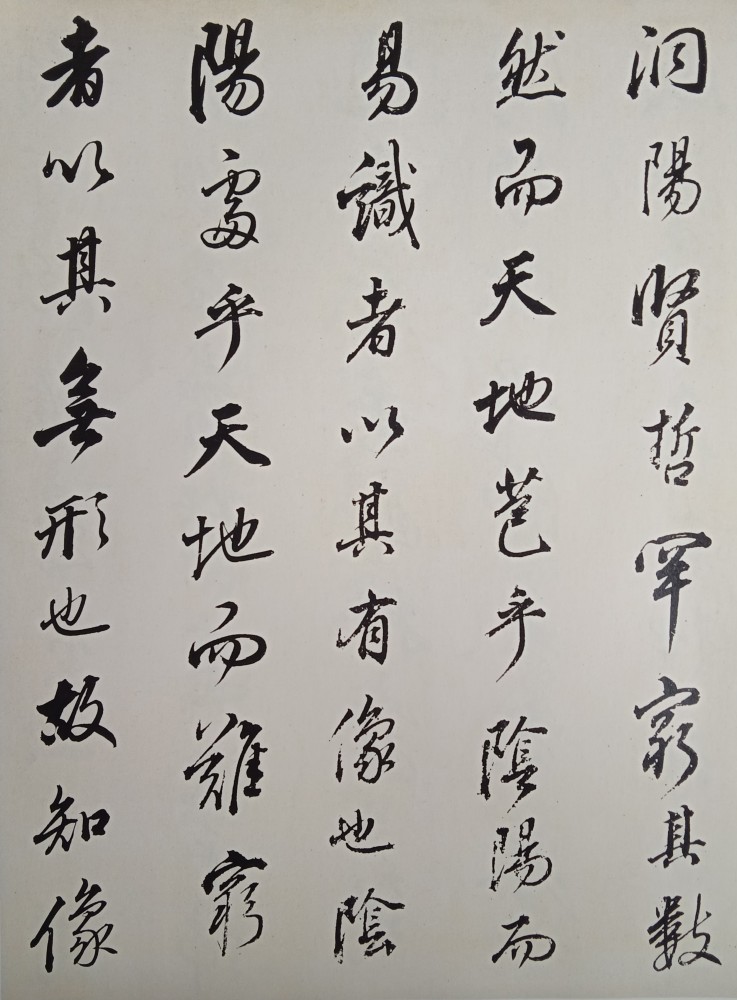 洞陽賢哲罕窮其數
然而天地苞乎陰陽而
易識者以其有像也陰
陽處乎天地而難窮
者以其無形也故知像